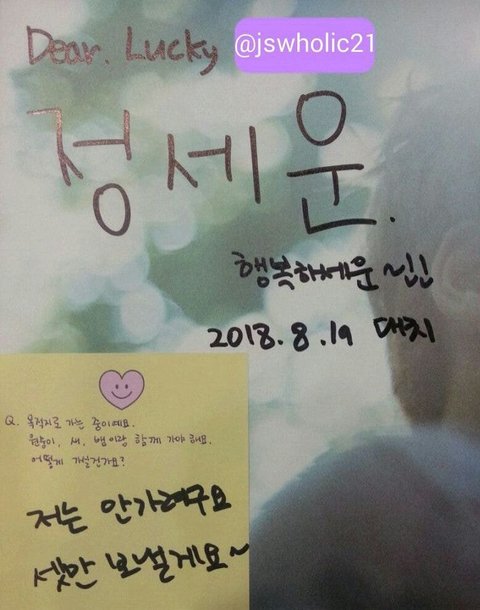 Dear. Lucky @jswholic21
정세운.
행복하세운~!!
2018.8.19 대치
Q. 목적지로 가는 중이예요.
원숭이, 새, 뱀이랑 함께 가야 해요.
어떻게 가실건가요?
저는 안가려구요
셋만 보낼게요~